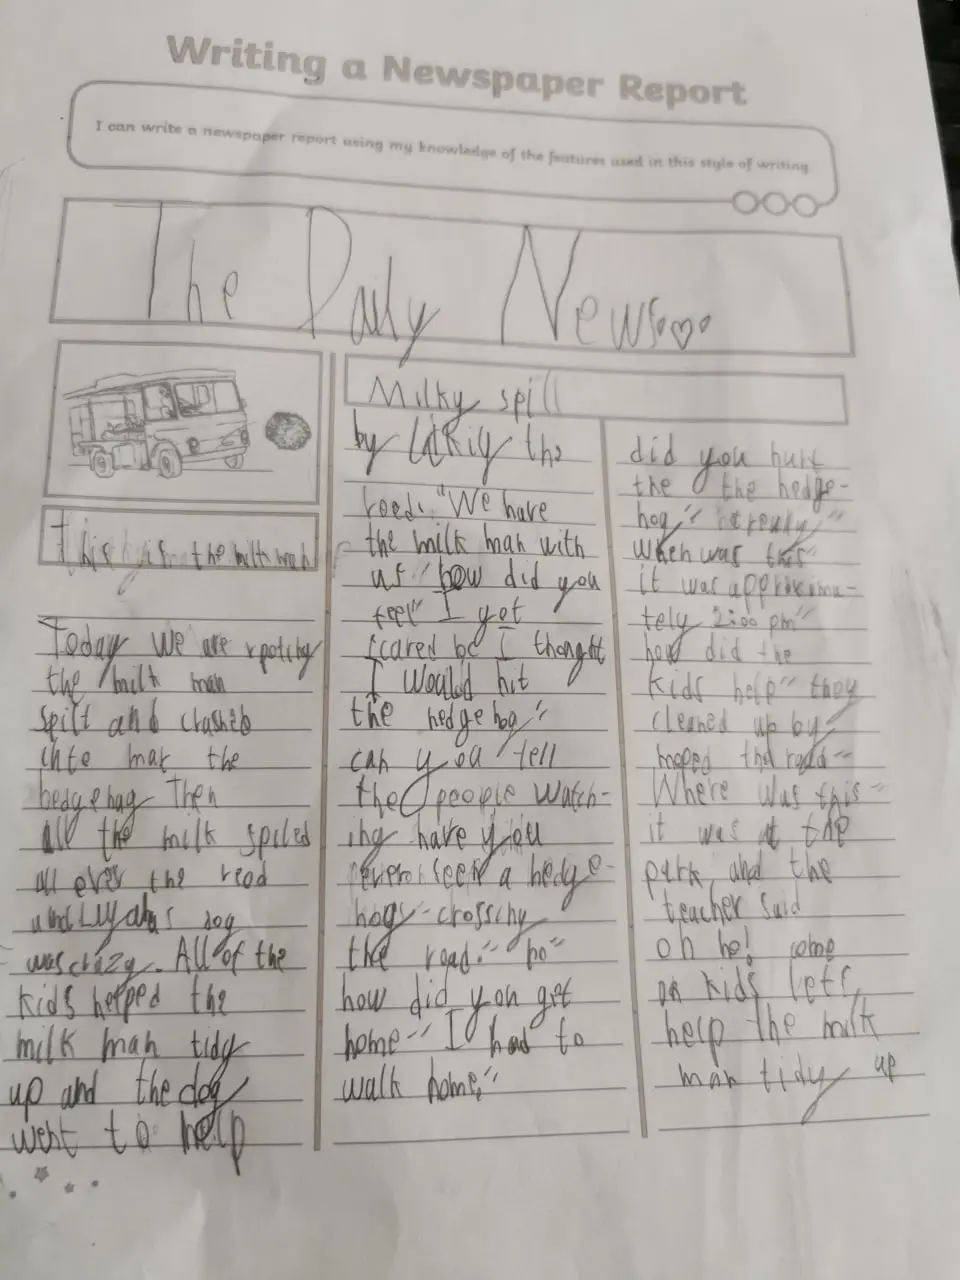 Writing a Newspaper Report
I can write a newspaper report using my knowledge of the features used in this style of writing
The Daily News
Milky spill
This is the milk man
Today we are rpoting
the milk man
spilt and crashed
inte mar the
hedgehag Then
all the milk spiled
all over the read
and dog
was crazy. All of the
kids helped the
milk man tidy
up and the dog
went to help
by the
reed. "We have
the milk man with
us" how did you
feel" I got
scared bc I thonght
I would hit
the hedgehog"
can you tell
the people watch-
ing have you
ever seen a hedge-
hog-crossing
the road." "no"
how did you get
home" I had to
walk home."
did you hurt
the the hedge-
hog"
when was this"
it was approximu-
tely 2:00 pm"
how did the
kids help" they
cleaned up by
moped the road"
Where was this"
it was at the
park, and the
teacher said
oh no! come
on kids lets
help the milk
man tidy up